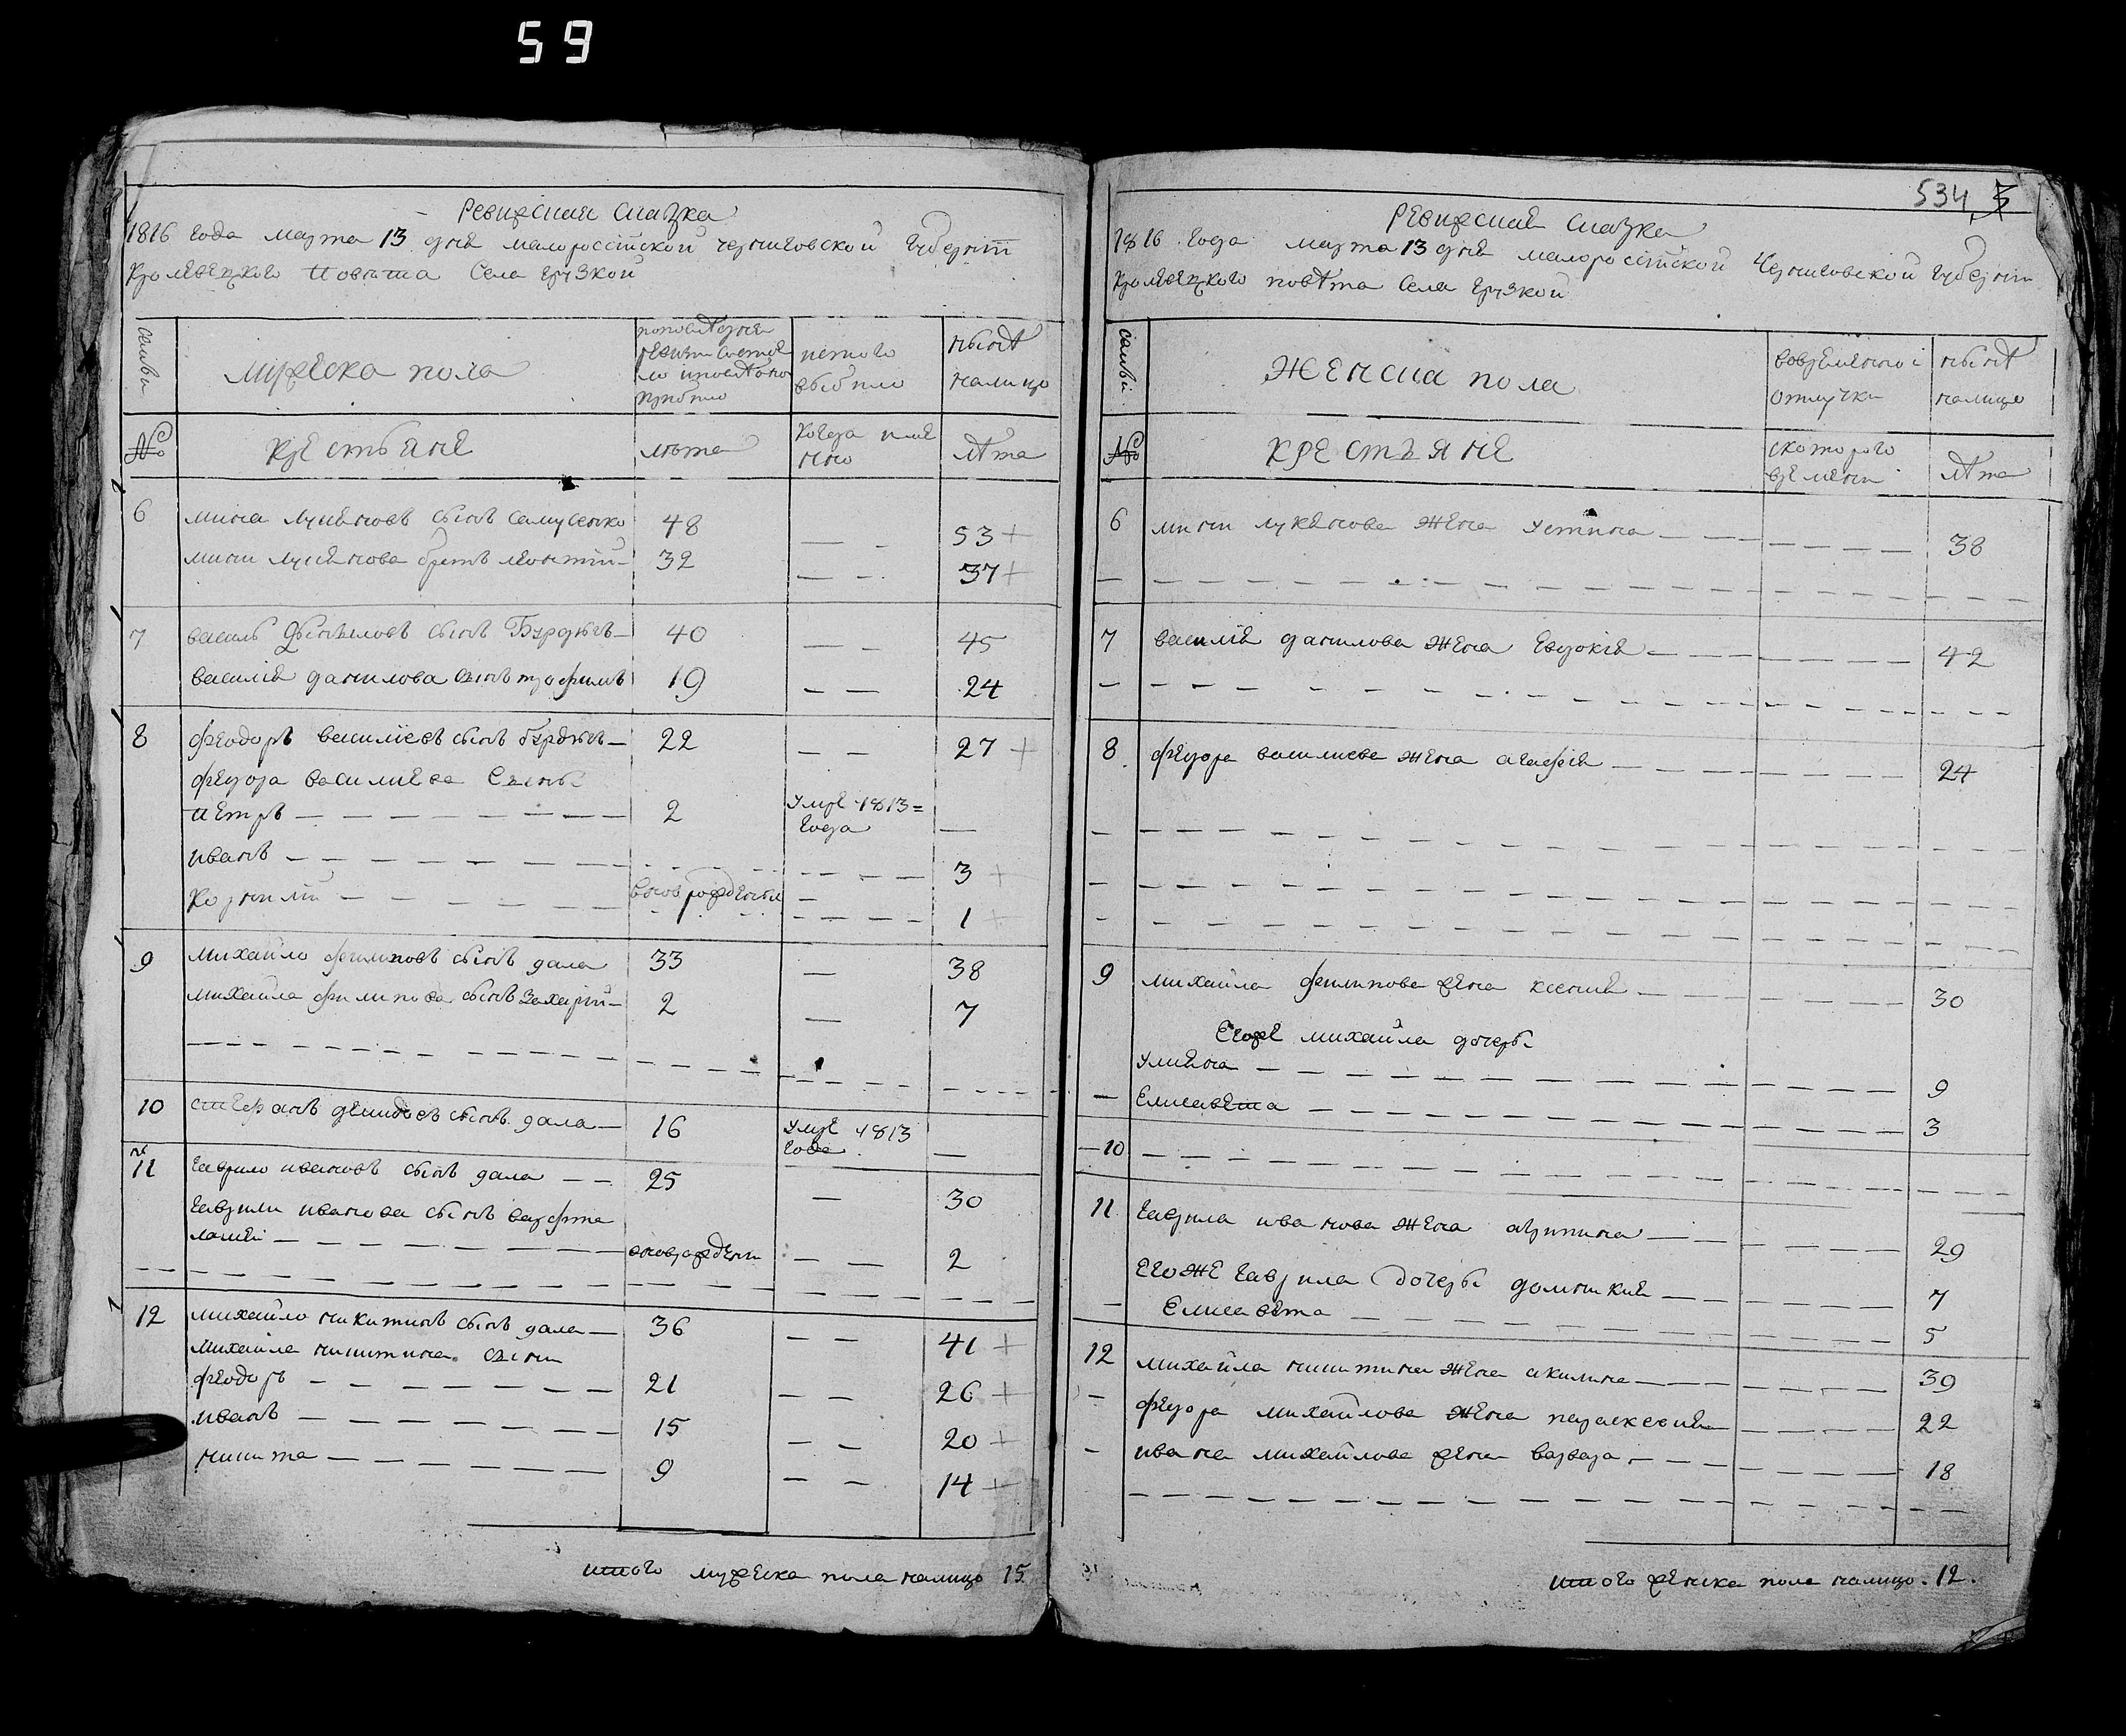 59
Ревизская сказка
1816 года марта 13 дня малороссїйской черниговской губернїи
Кролевецкого Повѣта Села Грузкой
семьи
мужеска пола
изтого
выбыло
ныне
налицо
№
крестьяне
лѣта
Когда имен
но
лѣта
6 мина лукяновъ сынъ самусенко 48 — - 53 +
мины лукянова братъ леонтїй 32 — - 37 +
7 василь данѣловъ сынъ Бурдюгъ 40 — - 45
василия данилова сынъ трофимъ 19 — — 24
8 феодоръ василїевъ сынъ бурдюгъ 22 — — 27 +
федора василиева сыны
петръ 2 умре 1813=
года —
иванъ 3 +
Корнилїй вновьрожденный 1 +
9 михайло филиповъ сынъ дала 33 — 38
михайла филипова сынъ захарїй 2 — 7
10 стефанъ демидовъ сынъ дала 16 умре 1813
года —
11 гаврило ивановъ сынъ дала 25 — 30
гаврили иванова сынъ варфто
ломей — вновьрожденны — — 2
12 михайло никитинъ сынъ дала 36 — — 41 +
михайла никитина сыни
феодоръ 21 — — 26 +
иванъ 15 — — 20 +
никита 9 — — 14 +
итого мужеска пола налицо 15
534
Ревизская сказка
1816 года марта 13 дня малоросїйской Черниговской губернїи
Кролевецкого повѣта села Грузкой
семьи
Женска пола
вовременной
отлучки
нынѣ
налицо
№
Крестъяне
скоторого
времени
лѣта
6 мины лукянова жена устина 38
7 василия данилова жена Евдокия 42
8 федора василиева жена агафия 24
9 михайла филипова жена ксения 30
Егоже михайла дочеры
Улияна 9
Елисавета 3
10
11 гаврила иванова жена агрипина 29
Егоже гаврила дочеры домникия 7
Елисавета 5
12 михайла никитина жена акилина 39
федора михайлова жена параскевия 22
ивана михайлова жена варвара 18
итого женска пола налицо. 12.